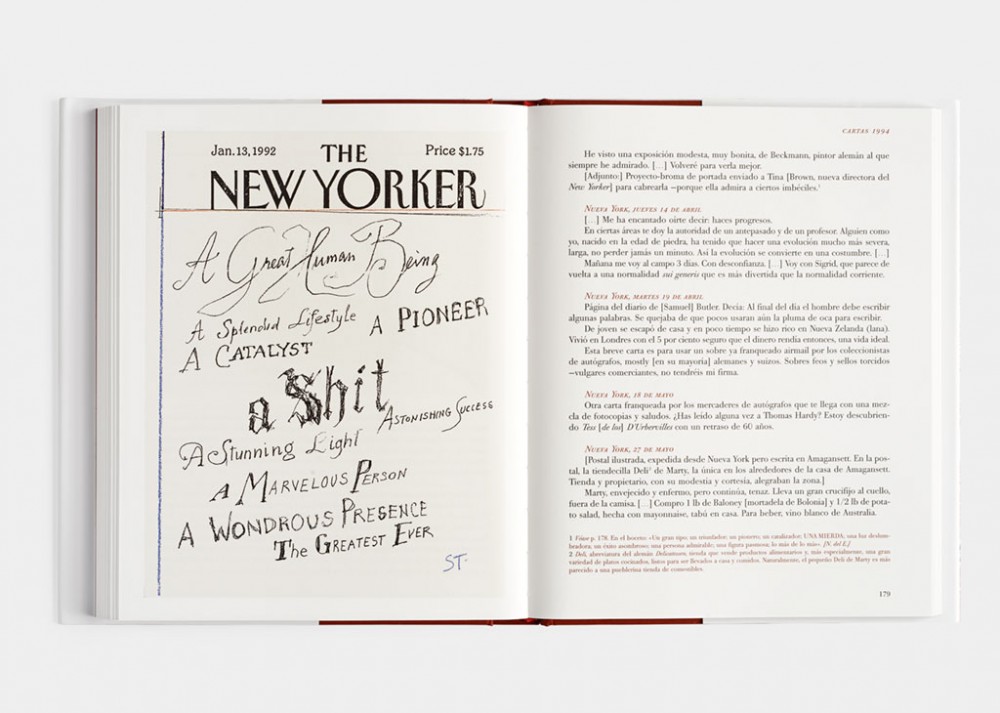 Jan. 13, 1992
THE
Price $1.75
NEW YORKER
A Great Human Being
A Splended Lifestyle
A PIONEER
A CATALYST
a Shit
ASTONISHING SUCCESS
A Stunning Light
A MARVELOUS PERSON
A WONDROUS PRESENCE
The GREATEST EVER
ST-
CARTAS 1994
He visto una exposición modesta, muy bonita, de Beckmann, pintor alemán al que
siempre he admirado. […] Volveré para verla mejor.
[Adjunto:] Proyecto-broma de portada enviado a Tina [Brown, nueva directora del
New Yorker] para cabrearla —porque ella admira a ciertos imbéciles.¹
NUEVA YORK, JUEVES 14 DE ABRIL
[…] Me ha encantado oírte decir: haces progresos.
En ciertas áreas te doy la autoridad de un antepasado y de un profesor. Alguien como
yo, nacido en la edad de piedra, ha tenido que hacer una evolución mucho más severa,
larga, no perder jamás un minuto. Así la evolución se convierte en una costumbre. […]
Mañana me voy al campo 3 días. Con desconfianza. […] Voy con Sigrid, que parece de
vuelta a una normalidad sui generis que es más divertida que la normalidad corriente.
NUEVA YORK, MARTES 19 DE ABRIL
Página del diario de [Samuel] Butler. Decía: Al final del día el hombre debe escribir
algunas palabras. Se quejaba de que pocos usaran aún la pluma de oca para escribir.
De joven se escapó de casa y en poco tiempo se hizo rico en Nueva Zelanda (lana).
Vivió en Londres con el 5 por ciento seguro que el dinero rendía entonces, una vida ideal.
Esta breve carta es para usar un sobre ya franqueado airmail por los coleccionistas
de autógrafos, mostly [en su mayoría] alemanes y suizos. Sobres feos y sellos torcidos
—vulgares comerciantes, no tendréis mi firma.
NUEVA YORK, 18 DE MAYO
Otra carta franqueada por los mercaderes de autógrafos que te llega con una mez-
cla de fotocopias y saludos. ¿Has leído alguna vez a Thomas Hardy? Estoy descubrien-
do Tess [de los] D'Urbervilles con un retraso de 60 años.
NUEVA YORK, 27 DE MAYO
[Postal ilustrada, expedida desde Nueva York pero escrita en Amagansett. En la pos-
tal, la tiendecilla Deli² de Marty, la única en los alrededores de la casa de Amagansett.
Tienda y propietario, con su modestia y cortesía, alegraban la zona.]
Marty, envejecido y enfermo, pero continúa, tenaz. Lleva un gran crucifijo al cuello,
fuera de la camisa. […] Compro 1 lb de Baloney [mortadela de Bolonia] y 1/2 lb de pota-
to salad, hecha con mayonnaise, tabú en casa. Para beber, vino blanco de Australia.
1 Véase p. 178. En el boceto: «Un gran tipo; un triunfador; un pionero; un catalizador; UNA MIERDA; una luz deslum-
bradora, un éxito asombroso; una persona admirable; una figura pasmosa, lo más de lo más». [N. del E.]
2 Deli, abreviatura del alemán Delicatessen, tienda que vende productos alimentarios y, más especialmente, una gran
variedad de platos cocinados, listos para ser llevados a casa y comidos. Naturalmente, el pequeño Deli de Marty es más
parecido a una pueblerina tienda de comestibles.
179